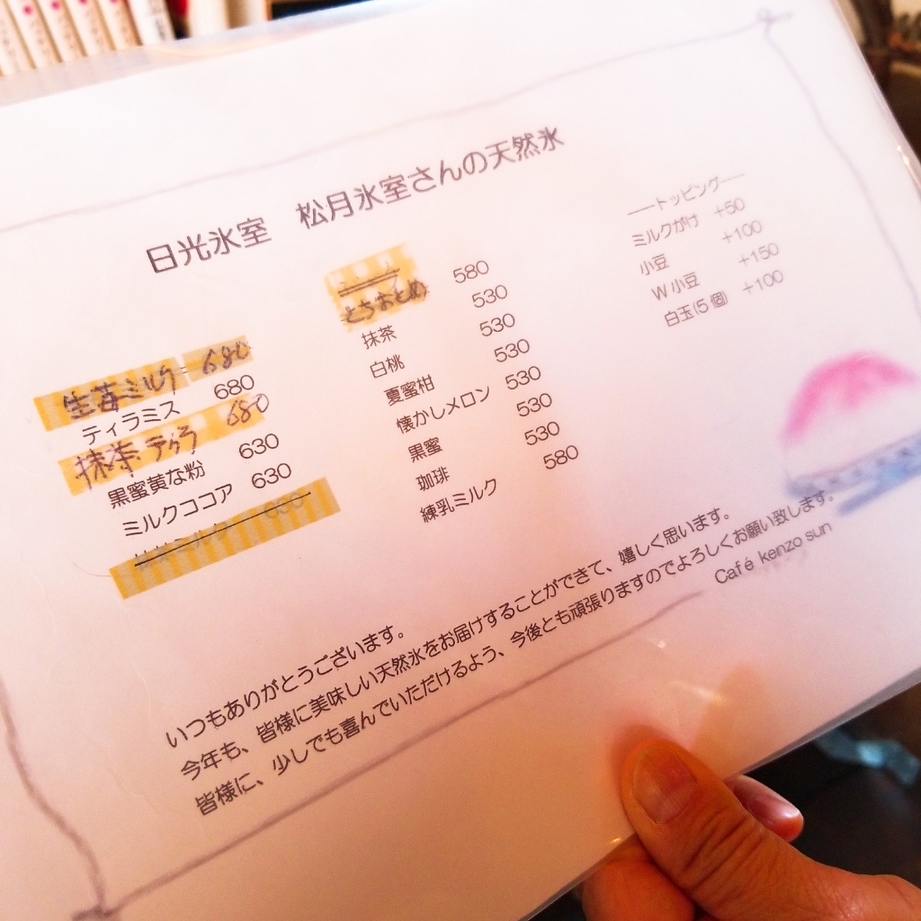 日光氷室 松月氷室さんの天然氷
生苺ミルク 680
ティラミス 680
抹茶ティラ 680
黒蜜黄な粉 630
ミルクココア 630
とちおとめ 580
抹茶 530
白桃 530
夏蜜柑 530
懐かしメロン 530
黒蜜 530
珈琲 530
練乳ミルク 580
トッピング
ミルクがけ +50
小豆 +100
W小豆 +150
白玉(5個) +100
いつもありがとうございます。
今年も、皆様に美味しい天然氷をお届けすることができて、嬉しく思います。
皆様に、少しでも喜んでいただけるよう、今後とも頑張りますのでよろしくお願い致します。
Café kenzo sun